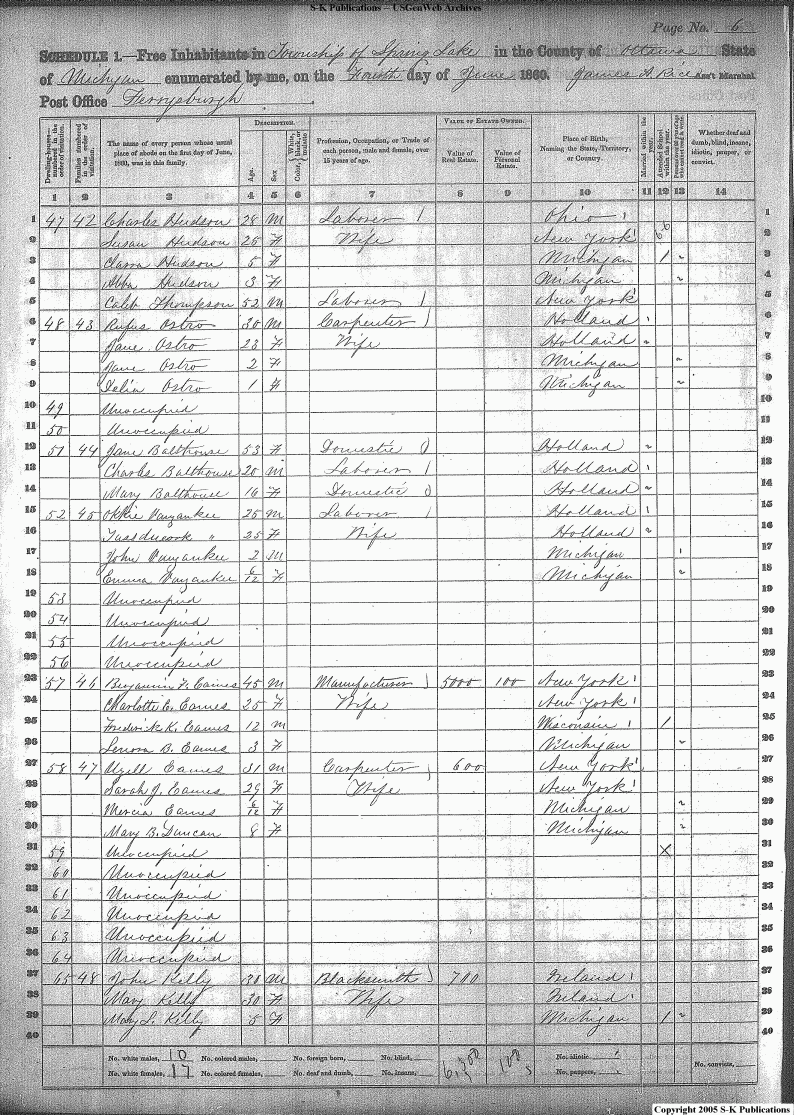 S-K Publications – USGenWeb Archives
Page No. 6
SCHEDULE 1.—Free Inhabitants in Township of Spring Lake in the County of Ottawa State
of Michigan enumerated by me, on the Fourth day of June 1860. James A. Rice Ass't Marshal.
Post Office Ferrysburgh
Dwelling-houses numbered in the order of visitation. Families numbered in the order of visitation. The name of every person whose usual place of abode on the first day of June, 1860, was in this family. DESCRIPTION. Age. Sex. Color, {White, black, or mulatto. Profession, Occupation, or Trade of each person, male and female, over 15 years of age. VALUE OF ESTATE OWNED. Value of Real Estate. Value of Personal Estate. Place of Birth, Naming the State, Territory, or Country. Married within the year. Attended School within the year. Whether deaf and dumb, blind, insane, idiotic, pauper, or convict.
1 2 3 4 5 6 7 8 9 10 11 12 13 14
1 47 42 Charles Hudson 28 M Laborer 1 Ohio 1 1
2 Susan Hudson 25 F Wife New York 2
3 Clara Hudson 5 F Michigan 1 3
4 Abba Hudson 3 F Michigan 4
5 Caleb Thompson 52 M Laborer 1 New York 5
6 48 43 Rufus Ostro 30 M Carpenter 1 Holland 1 6
7 Jane Ostro 23 F Wife Holland 7
8 Jane Ostro 2 F Michigan 8
9 Delia Ostro 1 F Michigan 9
10 49 Unoccupied 10
11 50 Unoccupied 11
12 51 44 Jane Balthouse 53 F Domestic 0 Holland 12
13 Charles Balthouse 20 M Laborer 1 Holland 1 13
14 Mary Balthouse 16 F Domestic 0 Holland 14
15 52 45 Okkie Vanyankee 25 M Laborer 1 Holland 1 15
16 " 25 F Wife Holland 16
17 John Vanyankee 2 M Michigan 1 17
18 Emma Vanyankee 6/12 F Michigan 18
19 53 Unoccupied 19
20 54 Unoccupied 20
21 55 Unoccupied 21
22 56 Unoccupied 22
23 57 46 Benjamin F. Eames 45 M Manufacturer 5000 100 New York 1 23
24 Charlotte C. Eames 25 F Wife New York 1 24
25 Frederick K. Eames 12 M Wisconsin 1 1 25
26 Lenora B. Eames 3 F Michigan 26
27 58 47 Uzell Eames 31 M Carpenter 600 New York 1 27
28 Sarah J. Eames 29 F Wife New York 1 28
29 Mercia Eames 6/12 F Michigan 29
30 Mary B. Duncan 8 F Michigan 30
31 59 Unoccupied X 31
32 60 Unoccupied 32
33 61 Unoccupied 33
34 62 Unoccupied 34
35 63 Unoccupied 35
36 64 Unoccupied 36
37 65 48 John Kelly 30 M Blacksmith 700 Ireland 1 37
38 Mary Kelly 30 F Wife Ireland 1 38
39 Mary L. Kelly 5 F Michigan 1 39
40 40
No. white males, 10 No. colored males, No. foreign born, No. blind, 6,300 100 No. idiotic
No. white females, 17 No. colored females, No. deaf and dumb, No. insane, No. paupers, No. convicts,
Copyright 2005 S-K Publications